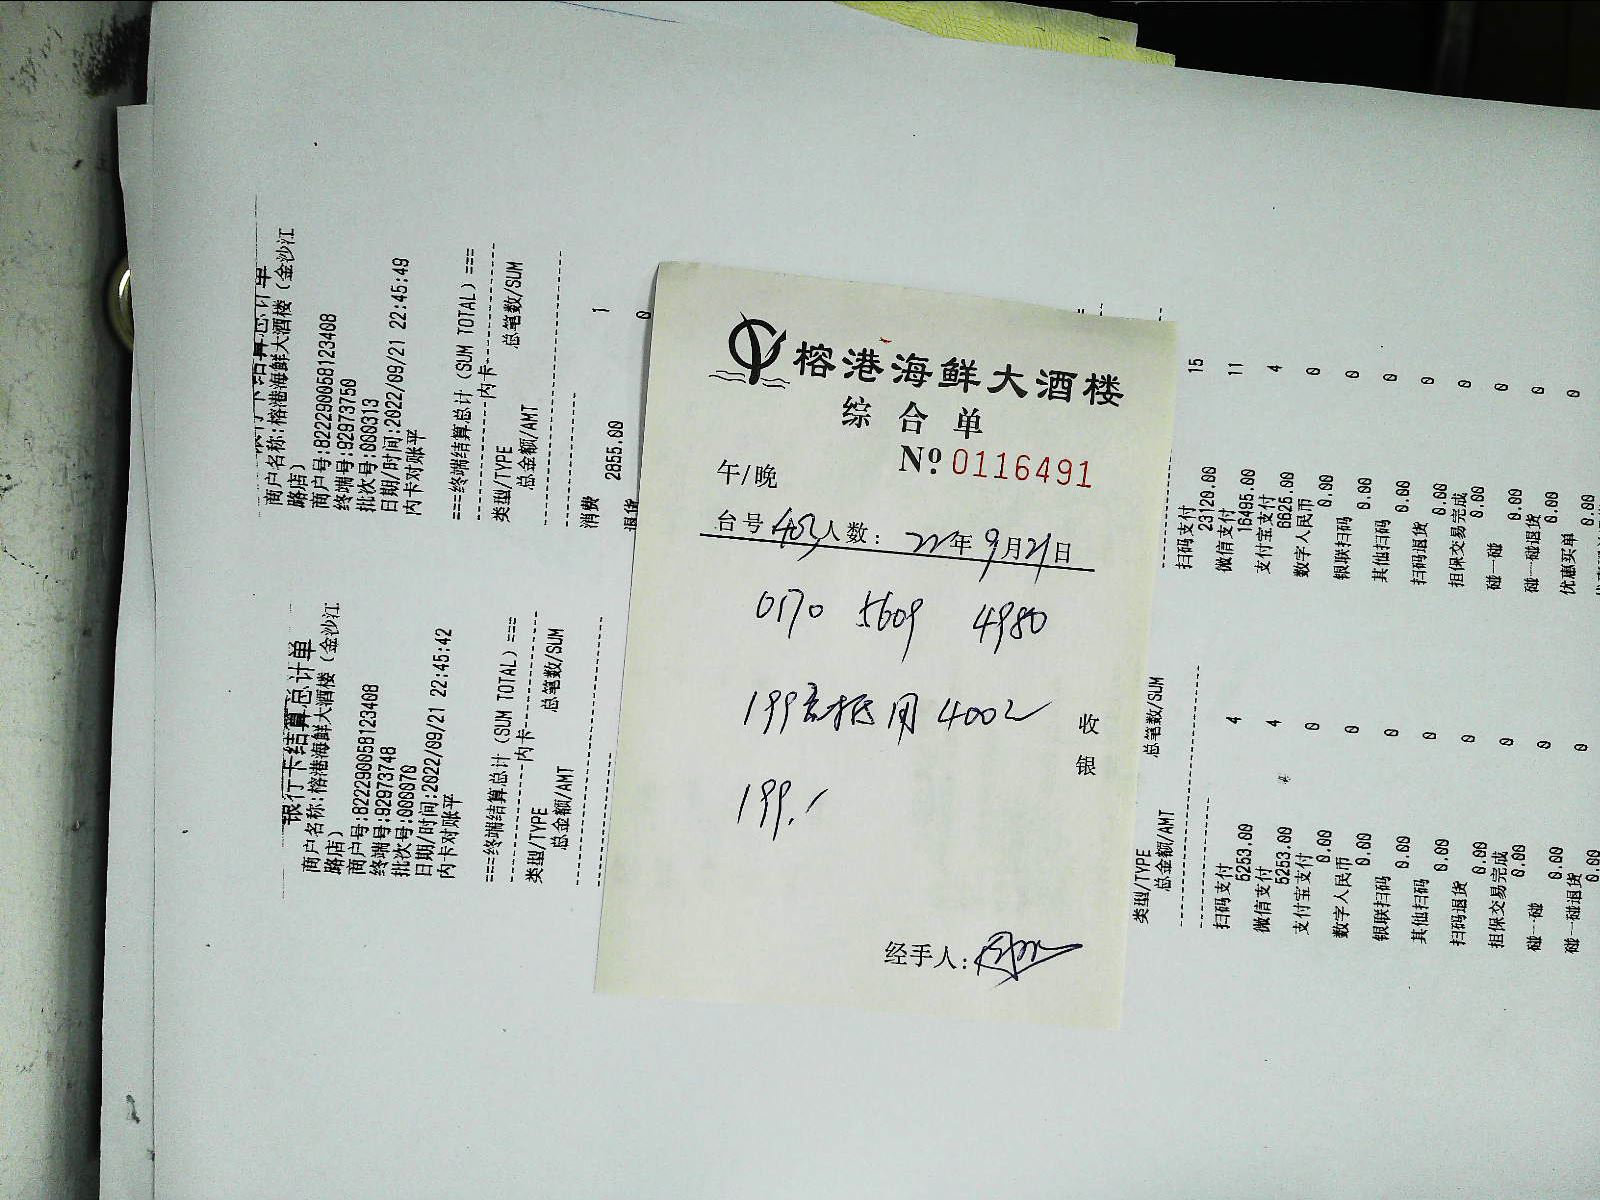 榕港海鲜大酒楼
综合单
No 0116491
午/晚
台号 403 人数: 22年9月21日
0170 5609 4980
199套抵用400元
199.-
收
银
经手人:
银行卡结算总计单
商户名称:榕港海鲜大酒楼(金沙江
路店)
商户号:822290058123408
终端号:92973750
批次号:000313
日期/时间:2022/09/21 22:45:49
内卡对账平
===终端结算总计(SUM TOTAL)===
内卡
类型/TYPE 总笔数/SUM
总金额/AMT
消费 1
2855.00
退货 0
扫码支付 15
23120.00
微信支付 11
16495.00
支付宝支付 4
6625.00
数字人民币 0
0.00
银联扫码 0
0.00
其他扫码 0
0.00
扫码退货 0
0.00
担保交易完成 0
0.00
碰一碰 0
0.00
碰一碰退货 0
0.00
优惠买单 0
0.00
银行卡结算总计单
商户名称:榕港海鲜大酒楼(金沙江
路店)
商户号:822290058123408
终端号:92973748
批次号:000070
日期/时间:2022/09/21 22:45:42
内卡对账平
===终端结算总计(SUM TOTAL)===
内卡
类型/TYPE 总笔数/SUM
总金额/AMT
类型/TYPE 总笔数/SUM
总金额/AMT
扫码支付 4
5253.00
微信支付 4
5253.00
支付宝支付 0
0.00
数字人民币 0
0.00
银联扫码 0
0.00
其他扫码 0
0.00
扫码退货 0
0.00
担保交易完成 0
0.00
碰一碰 0
0.00
碰一碰退货 0
0.00